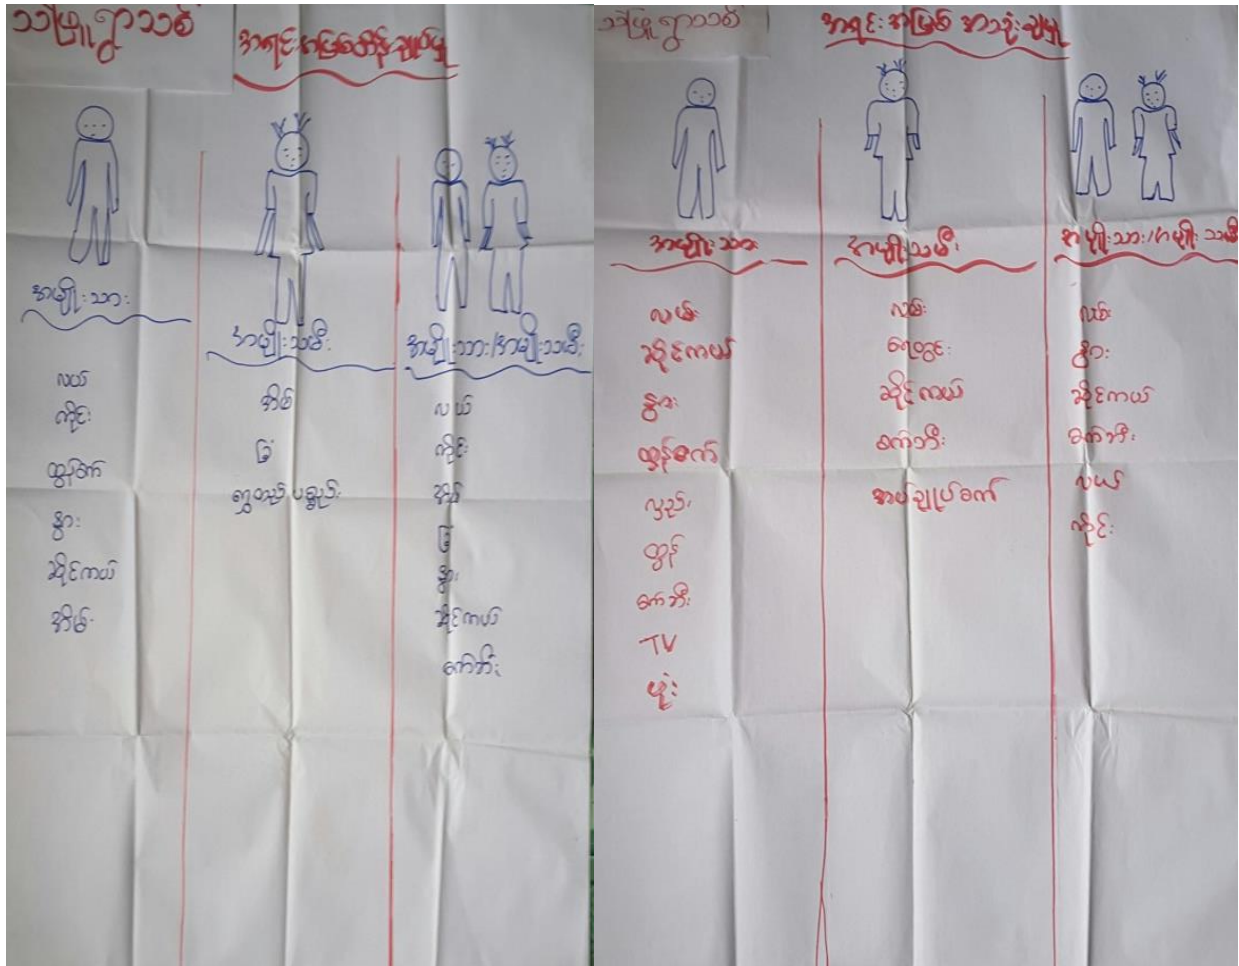 သဖြူရွာသစ်
အရင်းအမြစ်ထိန်းချုပ်မှု
အမျိုးသား
လယ်
ကိုင်း
ထွန်စက်
နွား
ဆိုင်ကယ်
အိမ်
အမျိုးသမီး
အိမ်
ခြံ
ရွှေထည်ပစ္စည်း
အမျိုးသား/အမျိုးသမီး
လယ်
ကိုင်း
အိမ်
ခြံ
နွား
ဆိုင်ကယ်
စက်ဘီး
သဖြူရွာသစ်
အရင်းအမြစ် အသုံးချမှု
အမျိုးသား
လမ်း
ဆိုင်ကယ်
နွား
ထွန်စက်
လှည်း
ထွန်
စက်ဘီး
TV
ဖုံး
အမျိုးသမီး
လမ်း
ရေတွင်း
ဆိုင်ကယ်
စက်ဘီး
အပ်ချုပ်စက်
အမျိုးသား/အမျိုးသမီး
လမ်း
နွား
ဆိုင်ကယ်
စက်ဘီး
လယ်
ကိုင်း